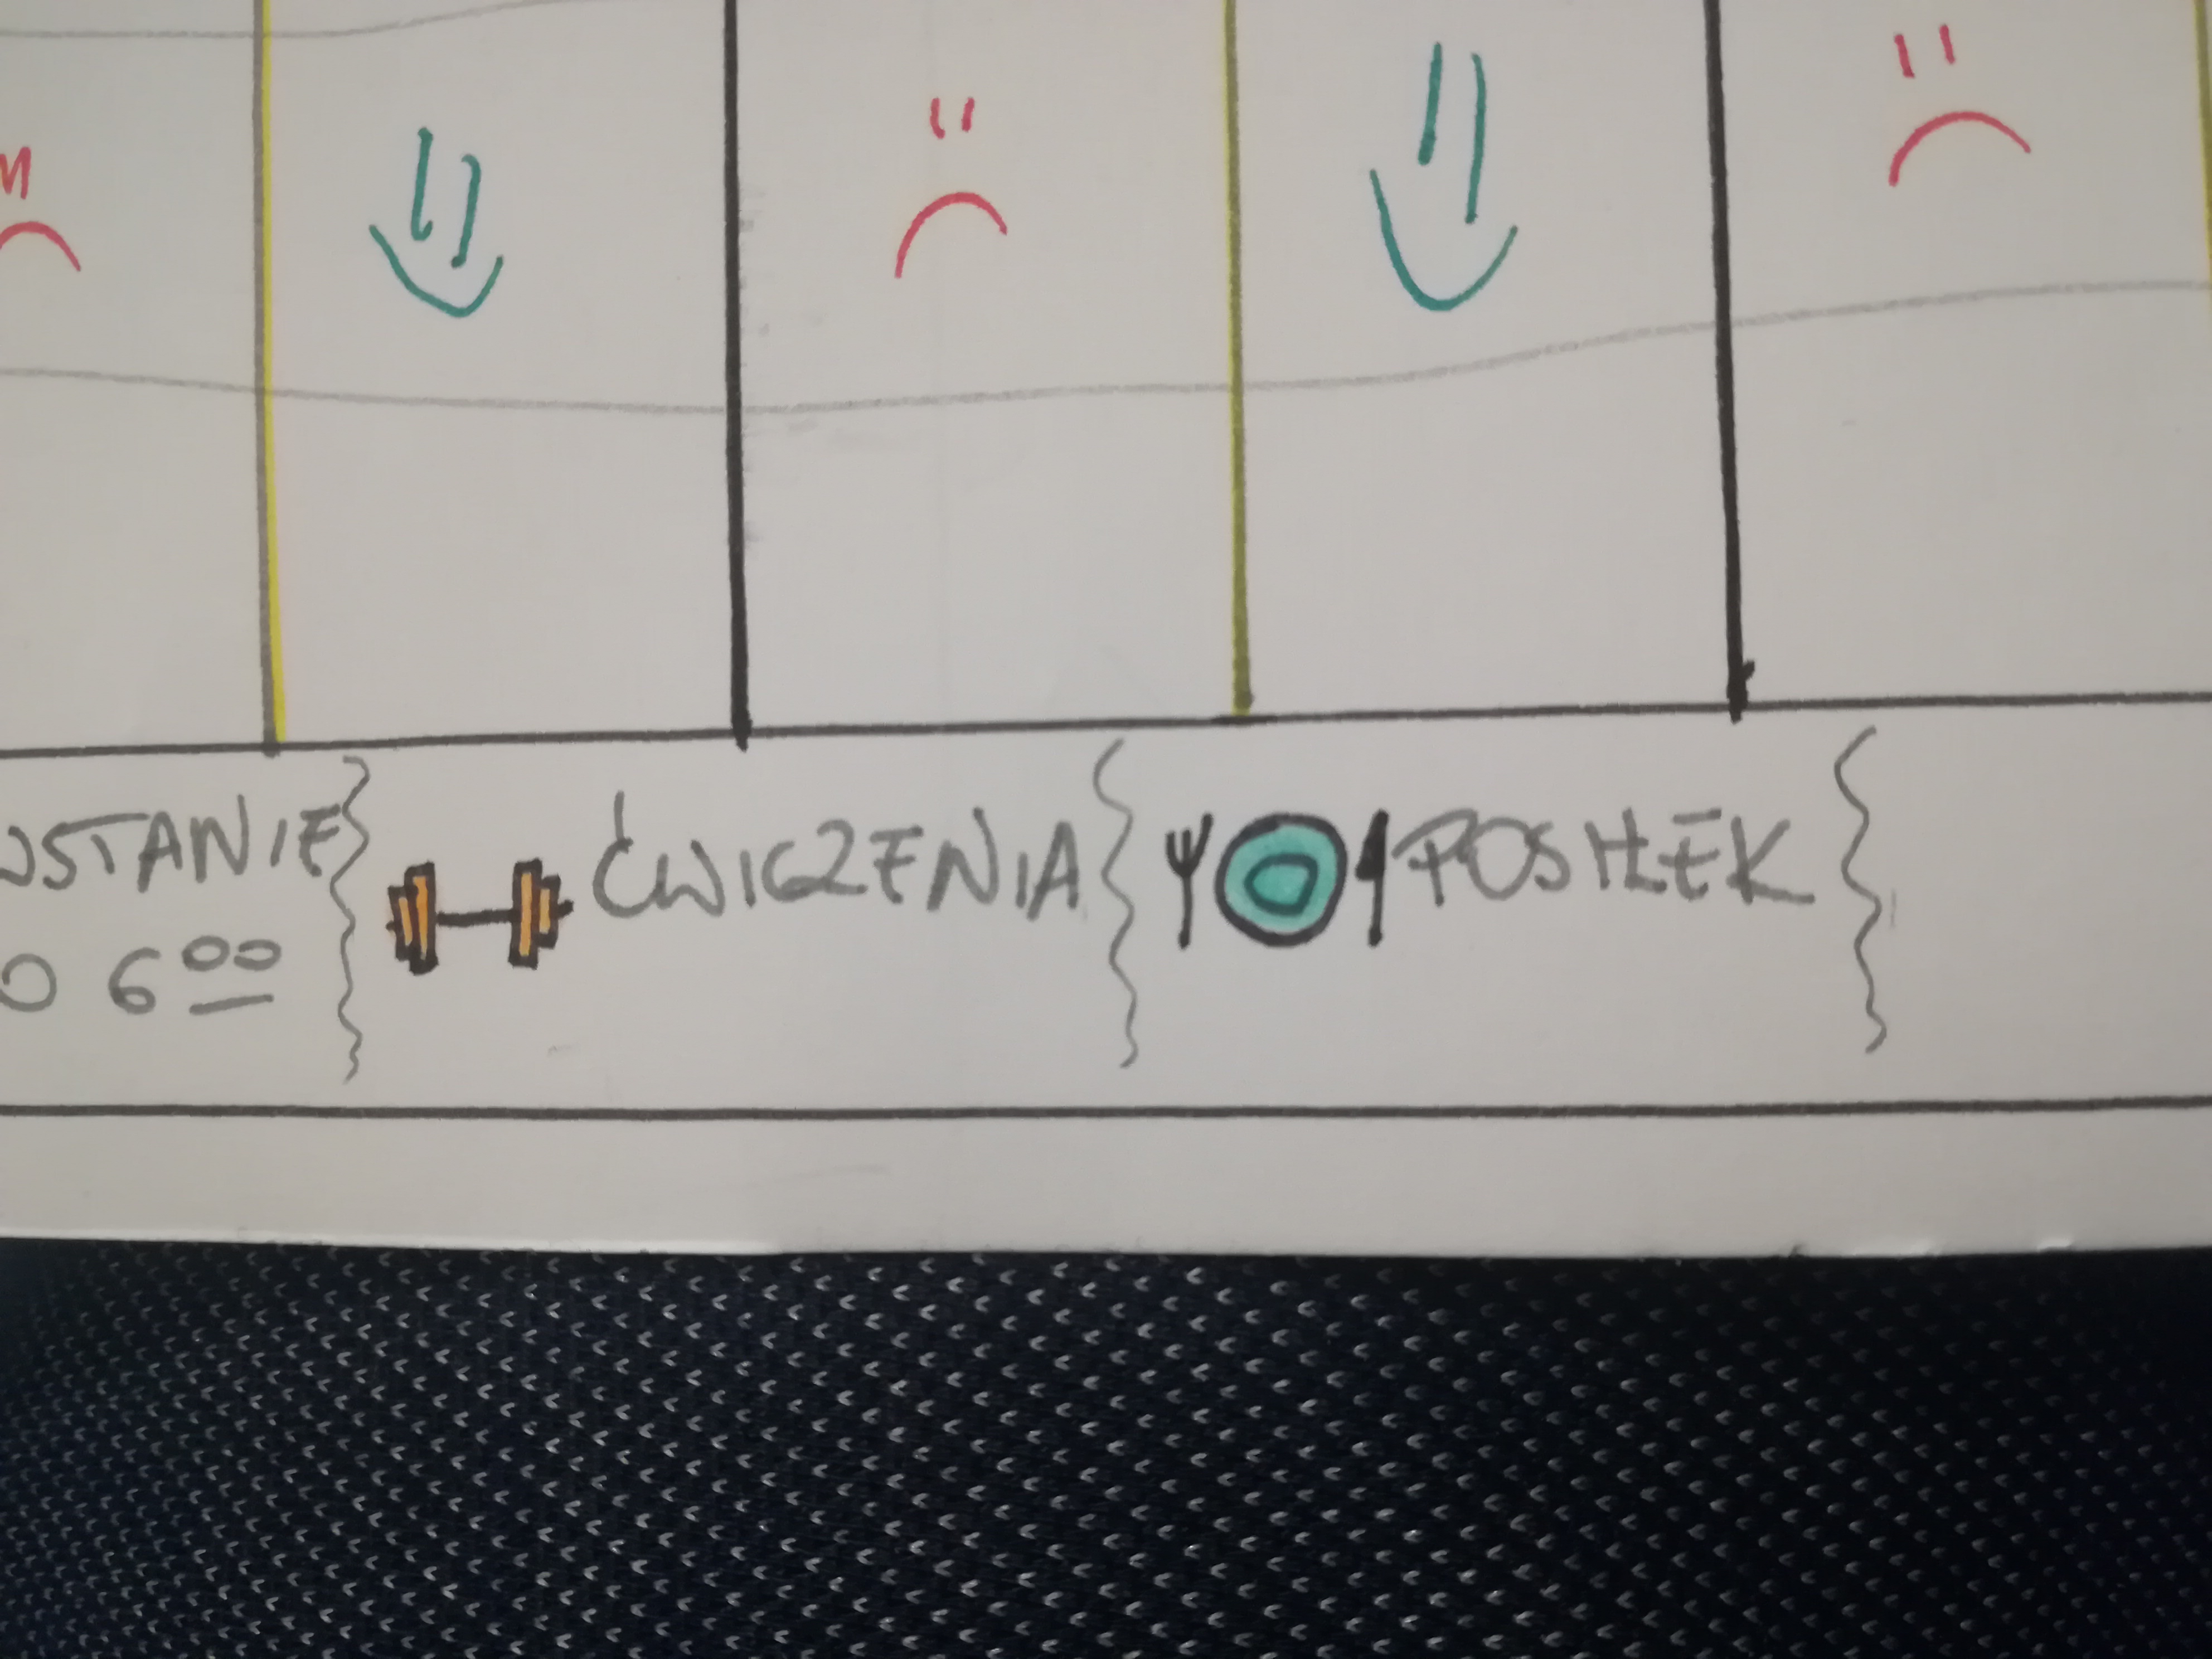 WSTANIE
O 6⁰⁰
ĆWICZENIA
POSIŁEK